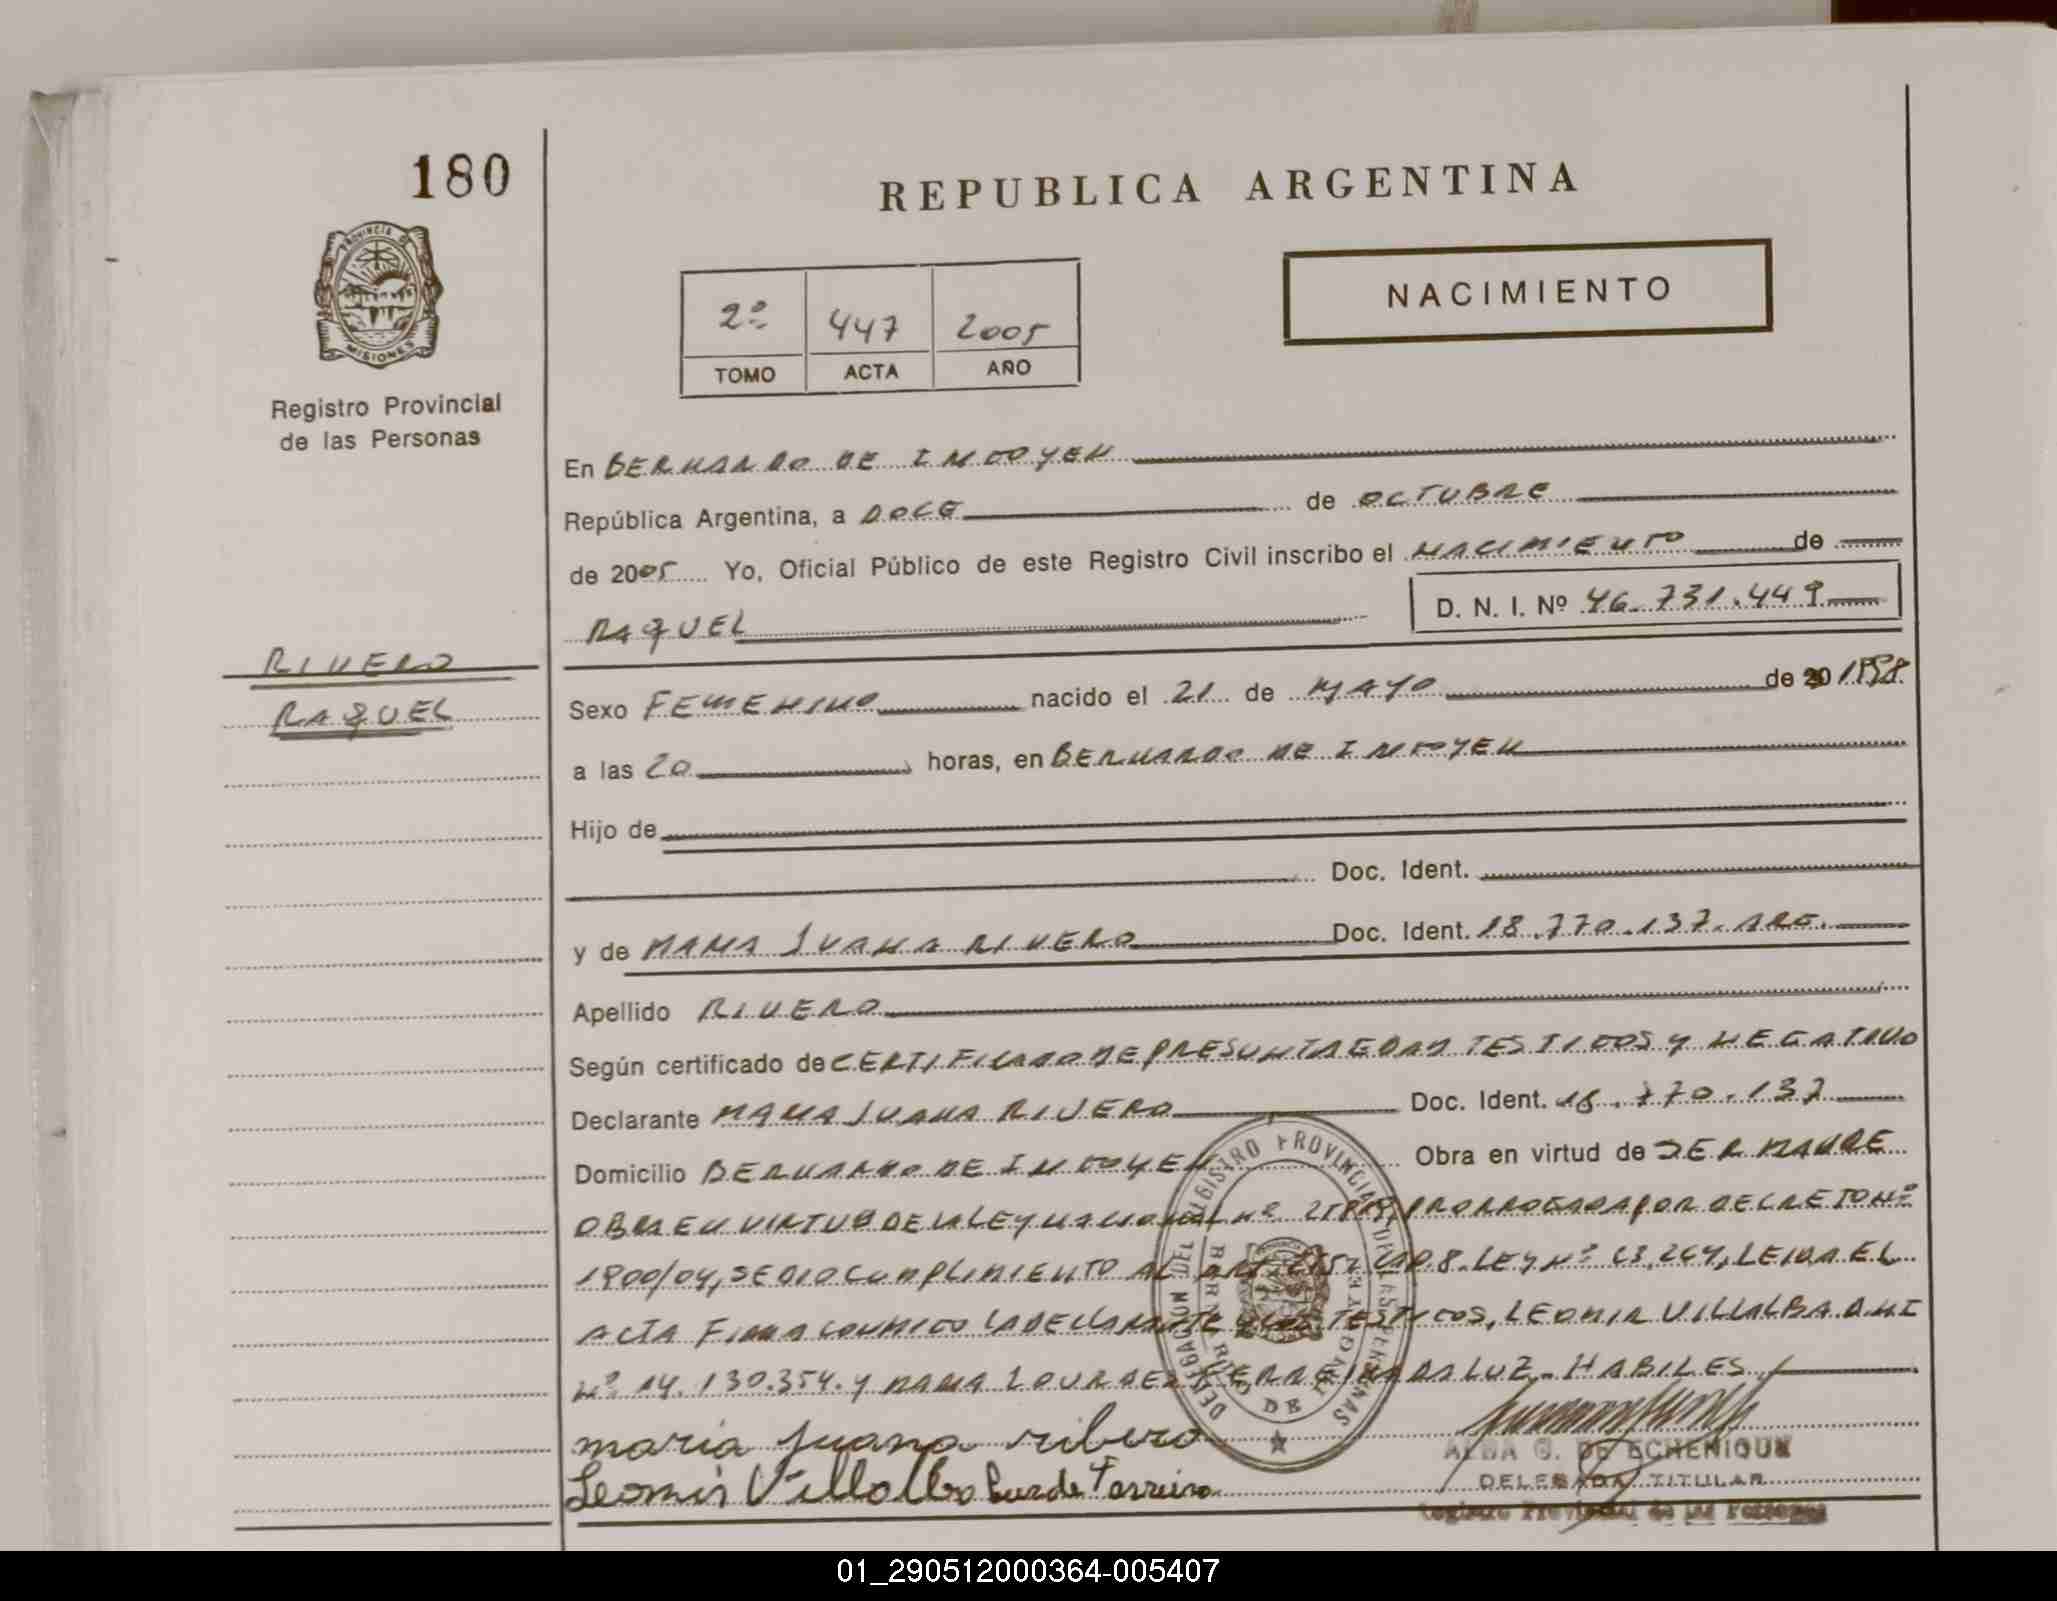 180
REPUBLICA ARGENTINA
PROVINCIA DE
MISIONES
NACIMIENTO
2º 447 2005
TOMO ACTA AÑO
Registro Provincial
de las Personas
En BERNARDO DE IRIGOYEN
República Argentina, a DOCE de OCTUBRE
de 2005 Yo, Oficial Público de este Registro Civil inscribo el NACIMIENTO de
RAQUEL D. N. I. Nº 46.731.449
RIVERO
RAQUEL
Sexo FEMENINO nacido el 21 de MAYO de 20 1998
a las 20 horas, en BERNARDO DE IRIGOYEN
Hijo de
Doc. Ident.
y de MARIA JUANA RIVERO Doc. Ident. 18.770.137. ARG.
Apellido RIVERO
Según certificado de CERTIFICADO DE PRESUNTA EDAD TESTIGOS Y NEGATIVO
Declarante MARIA JUANA RIVERO Doc. Ident. 18.770.137
Domicilio BERNARDO DE IRIGOYEN Obra en virtud de SER MADRE
OBRA EN VIRTUD DE LA LEY NACIONAL Nº PRORROGADA POR DECRETO Nº
1900/04, SE DIO CUMPLIMIENTO AL ART. CAP. 8. LEY Nº 23.264, LEIDA EL
ACTA FIRMA CONMIGO LA DECLARANTE Y LOS TESTIGOS, LEOMIR VILLALBA D.N.I
Nº 14.130.354. Y MARIA LOURDES FERREIRA DA LUZ. HABILES
maria juana ribero
Leomir Villalba Lurde Ferreira
DELEGACION DEL REGISTRO PROVINCIAL DE LAS PERSONAS
BERNARDO DE IRIGOYEN
ALBA G. DE ECHENIQUE
DELEGADA TITULAR
Registro Provincial de las Personas
01_290512000364-005407